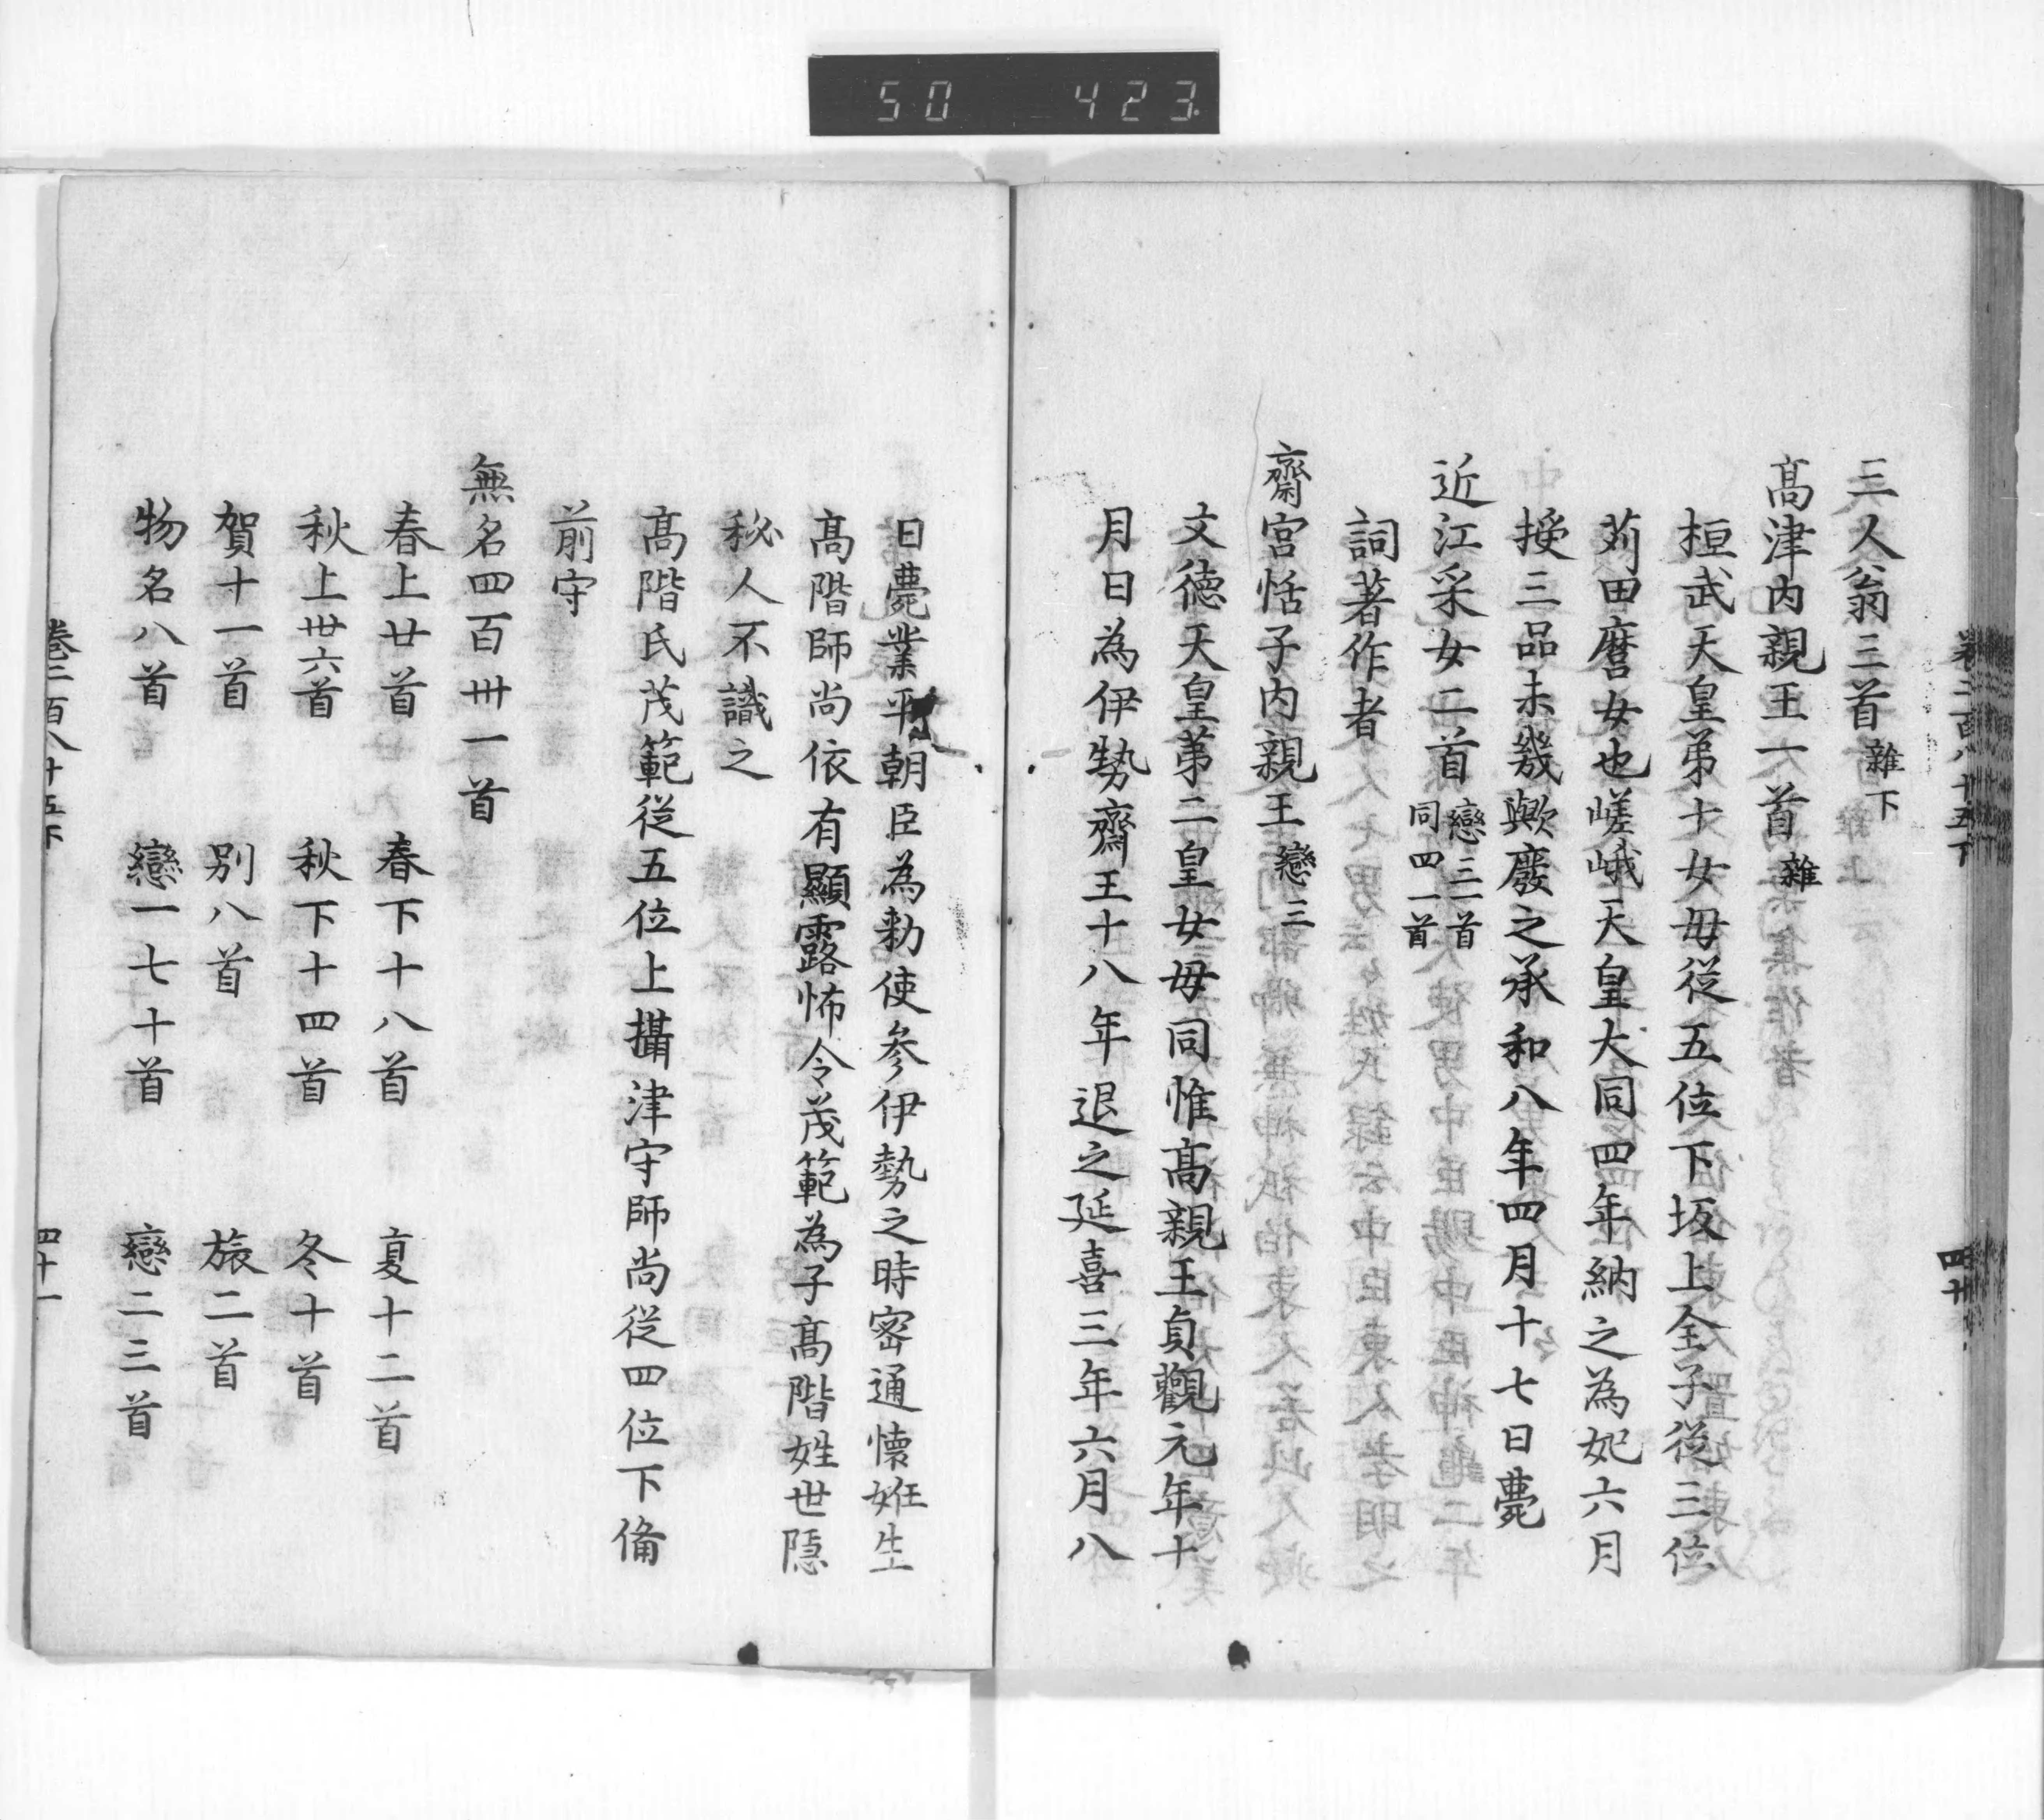 50 423
卷二百八十五下
四十
三人翁三首 雜下
髙津内親王一首 雜
桓武天皇弟十女毋從五位下坂上全子從三位
苅田麿女也嵯峨天皇大同四年納之為妃六月
授三品未幾歟廢之承和八年四月十七日薨
近江采女二首 戀三一首
同四一首
詞著作者
齋宮恬子内親王 戀三
文徳天皇苐二皇女毋同惟髙親王貞觀元年十
月日為伊勢齋王十八年退之延喜三年六月八
日薨業平朝臣為勅使参伊勢之時密通懐姙生
髙階師尚依有顯露怖令茂範為子髙階姓世隠
秘人不識之
髙階氏茂範從五位上攝津守師尚從四位下俻
前守
無名四百卅一首
春上廿首 春下十八首 夏十二首
秋上卌六首 秋下十四首 冬十首
賀十一首 別八首 旅二首
物名八首 戀一七十首 戀二三首
卷二百八十五下
四十一